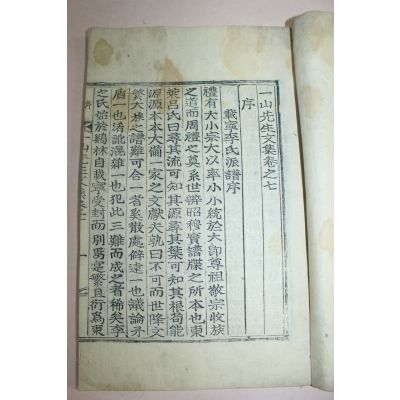 一山先生文集卷之七
序
載寧李氏派譜序
禮有大小宗大以率小小統於大卽尊祖敬宗收族
之道而周禮之奠系世辨昭穆實譜牒之所本也東
萊呂氏曰尋其流可知其源尋其葉可知其根苟能
源源本本大備一家之文獻夫孰曰不可而世降文
繁大族之譜難可合一者矣散處僻遠一也議論矛
盾一也淆訛混雜一也犯此三難而成之者稀矣李
之氏始於鷄林自載寧受封而別焉寔繁且衍爲東